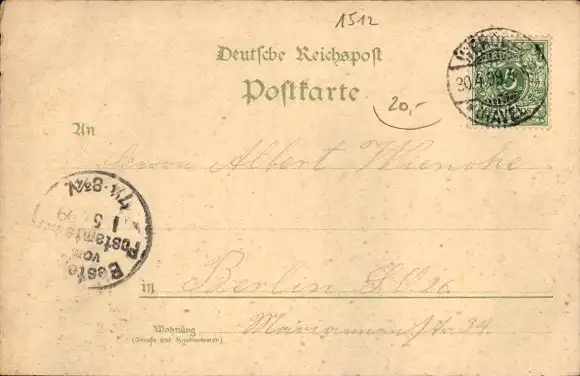 1512
Deutsche Reichspost
Postkarte
20,-
30.4.99.
HAVEL
An
Herrn Albert Wiencke
Bestellt
vom
Postamte
1 5 99
7¼-8¾N.
in Berlin S.O 26.
Wohnung Mariannenstr. 34.
(Straße und Hausnummer.)